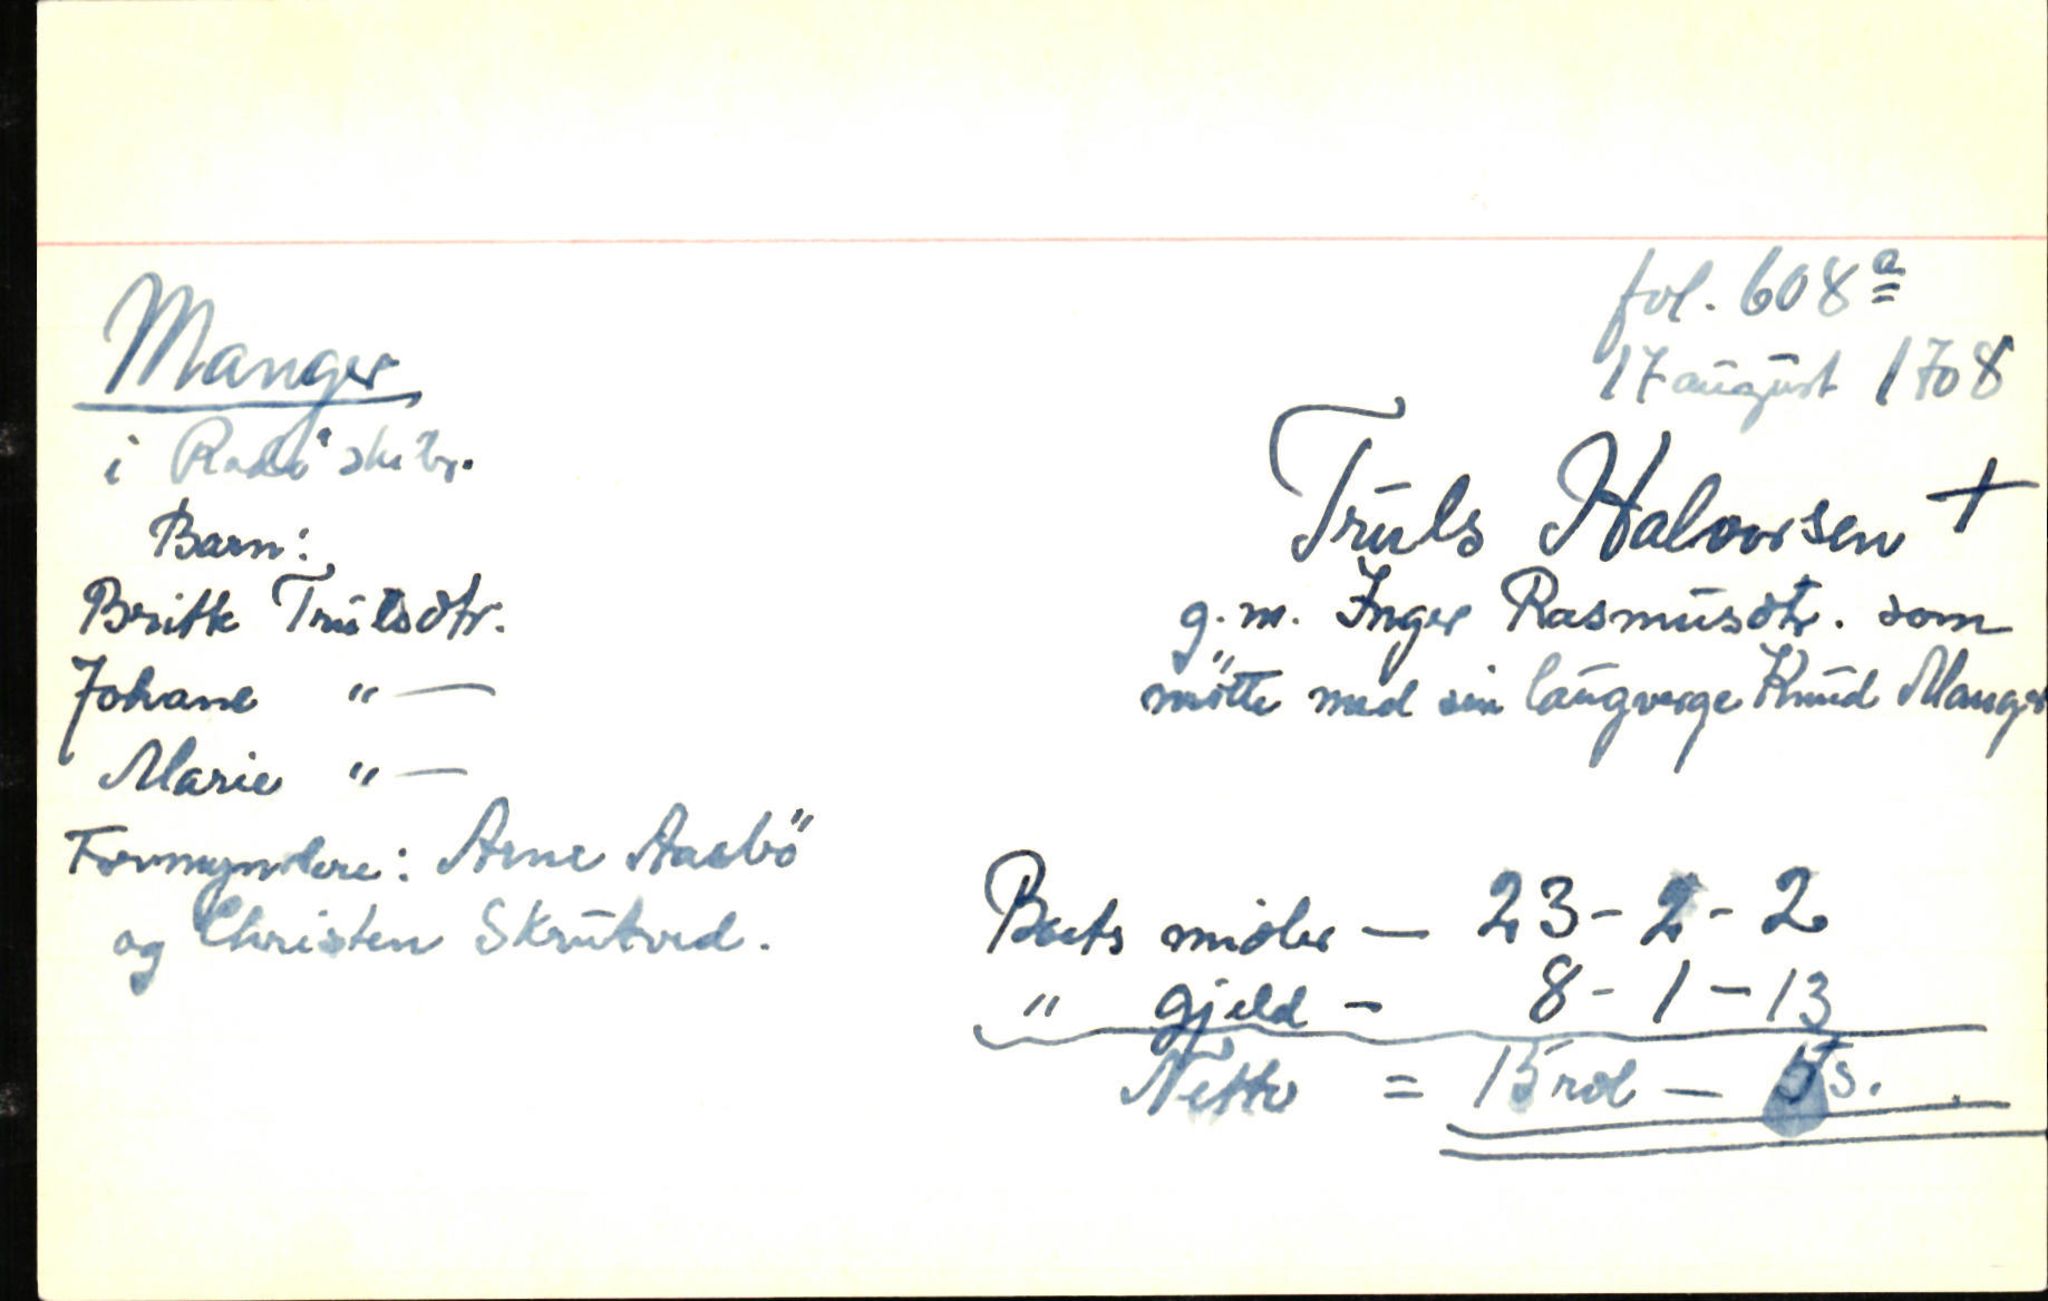 fol. 608a
17 august 1708
Manger
i Radö skibr.
Barn:
Britte Trulsdtr.
Johane " —
Marie " —
Formyndere: Arne Aasbö
og Christen Skrutved.
Truls Halvorsen +
g. m. Inger Rasmusdtr. som
mötte med sin laugverge Knud Manger
Boets midler — 23 - 2 - 2
" gjeld - 8 - 1 - 13
Netto = 15 rdl — 5 s.